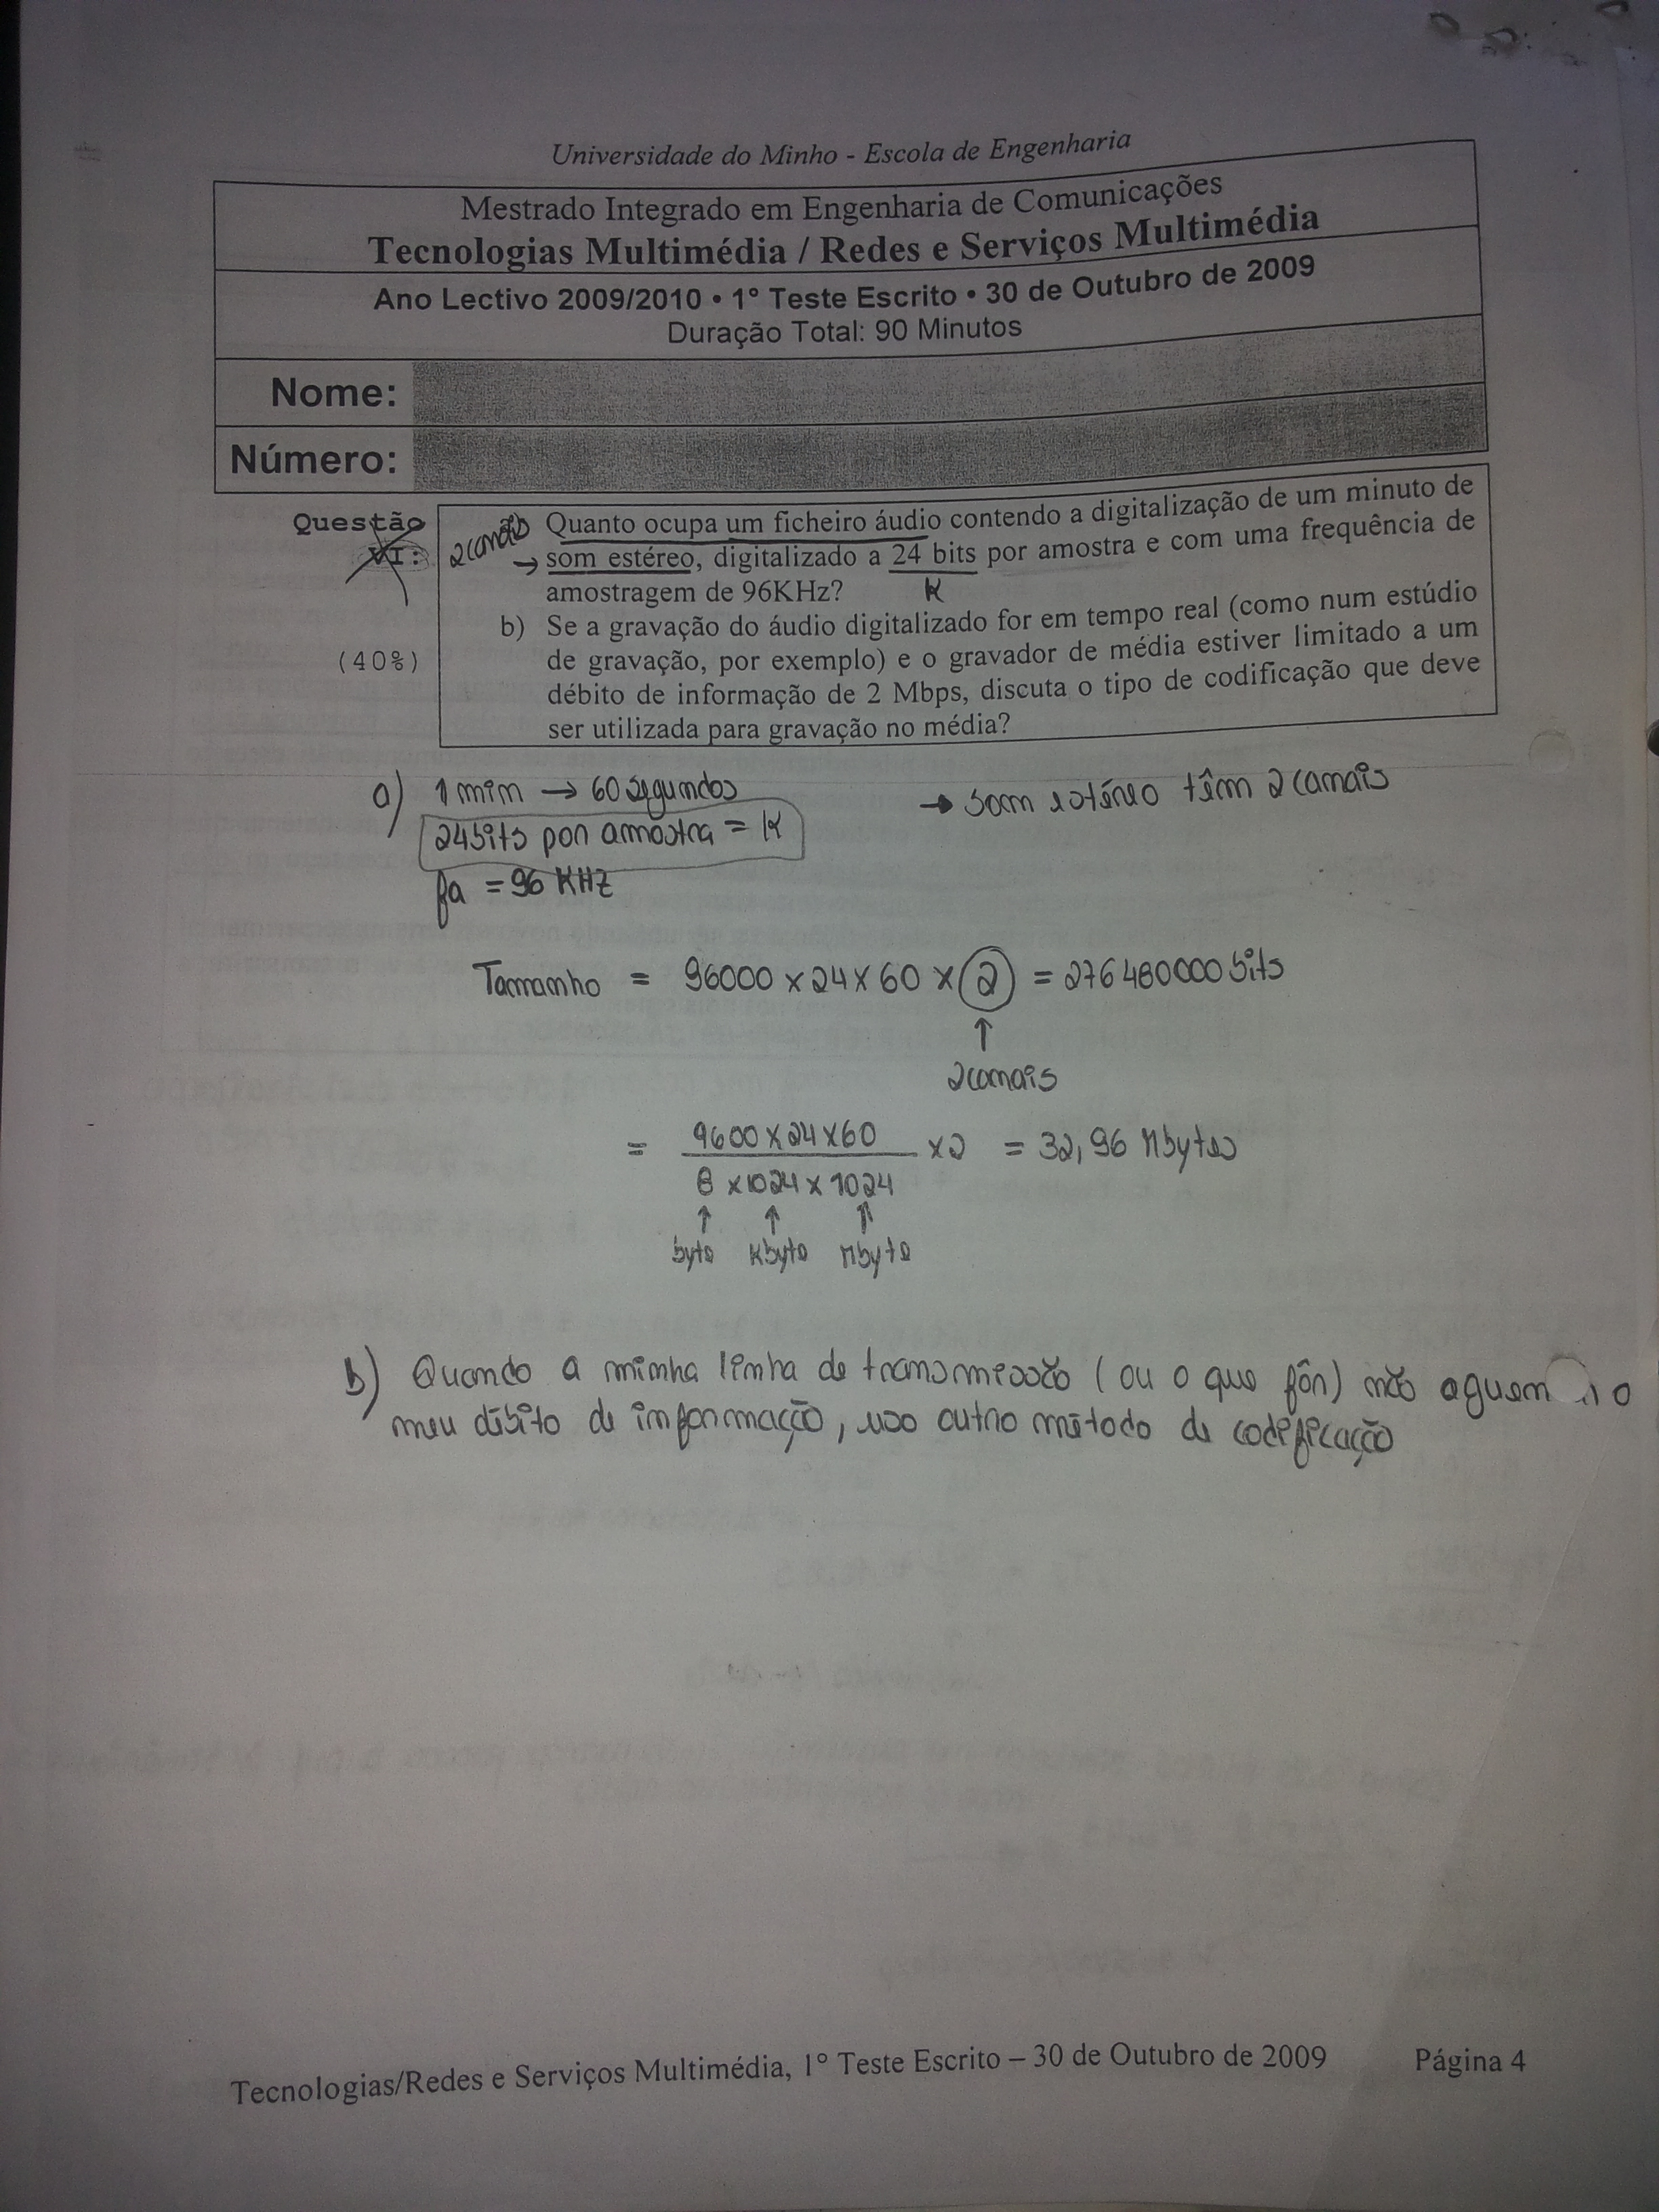 Universidade do Minho - Escola de Engenharia
Mestrado Integrado em Engenharia de Comunicações
Tecnologias Multimédia / Redes e Serviços Multimédia
Ano Lectivo 2009/2010 • 1º Teste Escrito • 30 de Outubro de 2009
Duração Total: 90 Minutos
Nome:
Número:
Questão
VI:
(40%)
2 canais
a) Quanto ocupa um ficheiro áudio contendo a digitalização de um minuto de
→ som estéreo, digitalizado a 24 bits por amostra e com uma frequência de
amostragem de 96KHz? K
b) Se a gravação do áudio digitalizado for em tempo real (como num estúdio
de gravação, por exemplo) e o gravador de média estiver limitado a um
débito de informação de 2 Mbps, discuta o tipo de codificação que deve
ser utilizada para gravação no média?
a) 1 min → 60 segundos → som estéreo têm 2 canais
24 bits por amostra = K
fa = 96 KHZ
Tamanho = 96000 x 24 x 60 x 2 = 276480000 bits
↑
2 canais
= 9600 x 24 x 60 x 2 = 32,96 Mbytes
8 x 1024 x 1024
↑ ↑ ↑
byte Kbyte Mbyte
b) Quando a minha linha de transmissão (ou o que fôr) não o
meu débito de informação, uso outro método de codificação
Tecnologias/Redes e Serviços Multimédia, 1º Teste Escrito – 30 de Outubro de 2009 Página 4